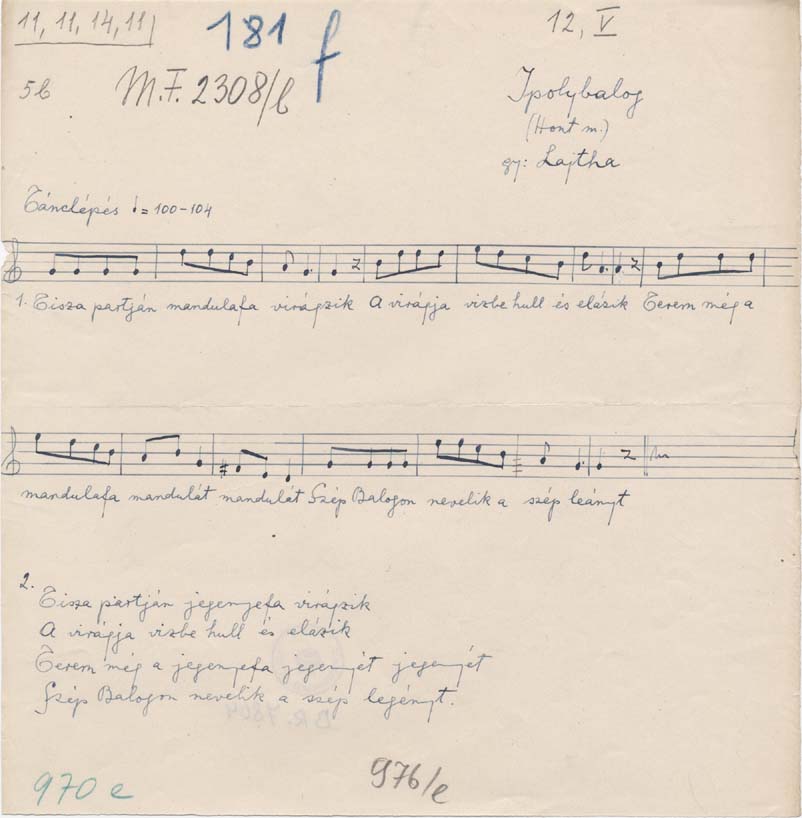 11, 11, 14, 11
181 f
12, V
5b
M.F. 2308/b
Ipolybalog
(Hont m.)
gy: Lajtha
Tánclépés ♩ = 100-104
1. Tisza partján mandulafa virágzik A virágja vizbe hull és elázik Terem még a
mandulafa mandulát mandulát Szép Balogon nevelik a szép leányt
2.
Tisza partján jegenyefa virágzik
A virágja vizbe hull és elázik
Terem még a jegenyefa jegenyét jegenyét
Szép Balogon nevelik a szép legényt.
970 e
976/e